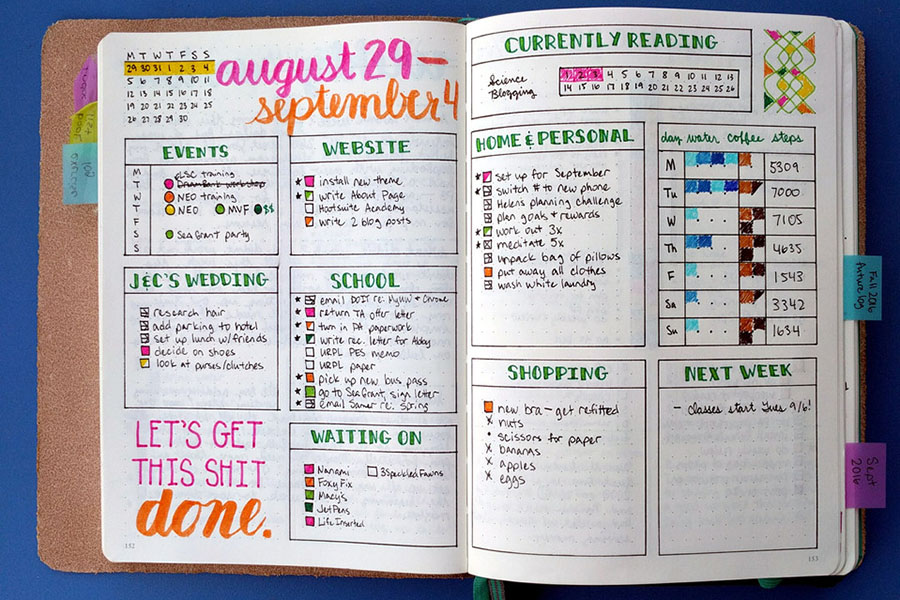 M T W T F S S
29 30 31 1 2 3 4
5 6 7 8 9 10 11
12 13 14 15 16 17 18
19 20 21 22 23 24 25
26 27 28 29 30
august 29 –
september 4
EVENTS
M LSC training
T Drambank workshop
W NEO training
T NEO MVF $$
F
S Sea Grant party
S
WEBSITE
install new theme
write About Page
Hootsuite Academy
write 2 blog posts
J&C'S WEDDING
research hair
add parking to hotel
set up lunch w/friends
decide on shoes
look at purses/clutches
SCHOOL
email DOIT re: MyUW & Chrome
return TA offer letter
turn in PA paperwork
write rec. letter for Abby
URPL PES memo
URPL paper
pick up new bus pass
go to Sea Grant, sign letter
email Samer re: Spring
LET'S GET
THIS SHIT
done.
WAITING ON
Nanami
Foxy Fix
Macy's
JetPens
Life Inserted
3 Speckled Fawns
152
CURRENTLY READING
Science
Blogging
1 2 3 4 5 6 7 8 9 10 11 12 13
14 15 16 17 18 19 20 21 22 23 24 25 26
HOME & PERSONAL
set up for September
switch # to new phone
Helen's planning challenge
plan goals + rewards
work out 3x
meditate 5x
unpack bag of pillows
put away all clothes
wash white laundry
day water coffee steps
M 5309
Tu 7000
W 7105
Th 4635
F 1543
Sa 3342
Su 1634
SHOPPING
new bra – get refitted
nuts
scissors for paper
bananas
apples
eggs
NEXT WEEK
– classes start Tues 9/6!
153
Fall 2016
future log
Sept
2016